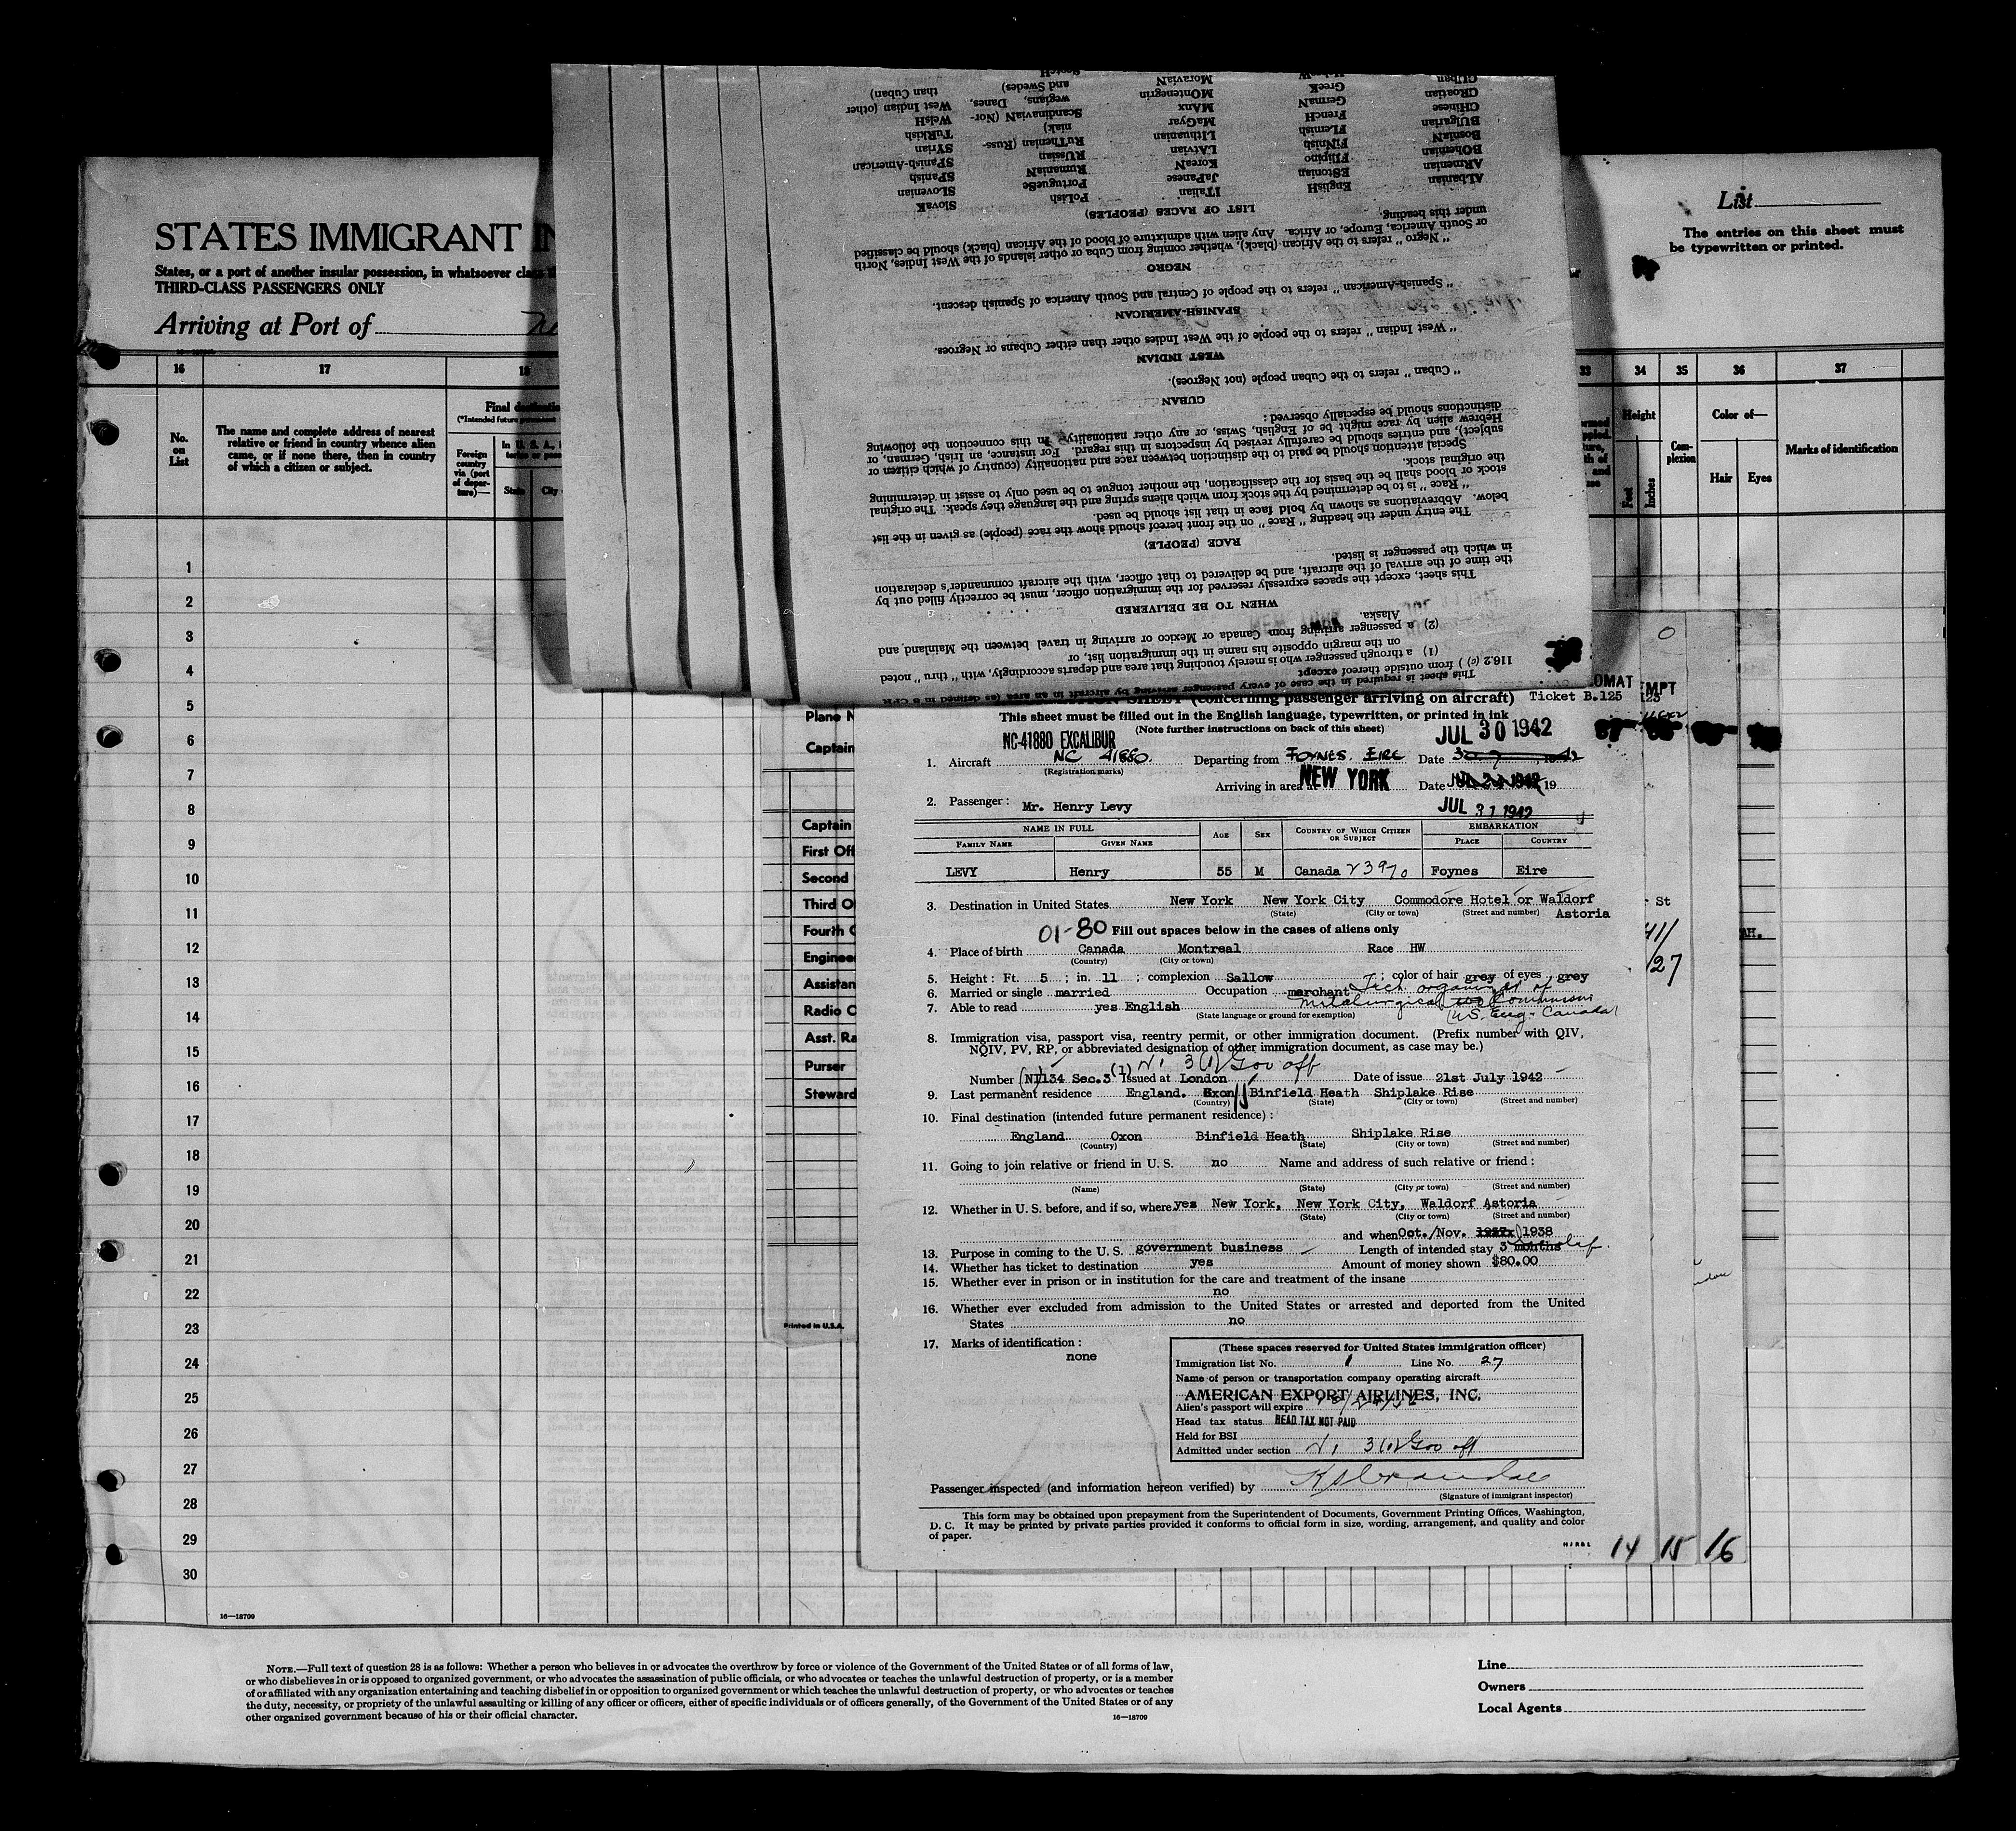 STATES IMMIGRANT IN
States, or a port of another insular possession, in whatsoever class
THIRD-CLASS PASSENGERS ONLY
Arriving at Port of
List
The entries on this sheet must
be typewritten or printed.
16 17 18 33 34 35 36 37
No. on List
The name and complete address of nearest relative or friend in country whence alien came, or if none there, then in country of which a citizen or subject.
Final destination
(*Intended future permanent
Foreign country via (port of departure)—
In U. S. A.,
State
City
Height
Feet
Inches
Complexion
Color of—
Hair
Eyes
Marks of identification
1
2
3
4
5
6
7
8
9
10
11
12
13
14
15
16
17
18
19
20
21
22
23
24
25
26
27
28
29
30
16—18709
This sheet is required in the case of every passenger arriving by aircraft in an area (as defined in 8 CFR
116.2 (c) ) from outside thereof except
(1) a through passenger who is merely touching that area and departs accordingly, with "thru" noted
on the margin opposite his name in the immigration list, or
(2) a passenger arriving from Canada or Mexico or arriving in travel between the Mainland and
Alaska.
WHEN TO BE DELIVERED
This sheet, except the spaces expressly reserved for the immigration officer, must be correctly filled out by
the time of the arrival of the aircraft, and be delivered to that officer, with the aircraft commander's declaration
in which the passenger is listed.
RACE (PEOPLE)
The entry under the heading "Race" on the front hereof should show the race (people) as given in the list
below. Abbreviations as shown by bold face in that list should be used.
"Race" is to be determined by the stock from which aliens spring and the language they speak. The original
stock or blood shall be the basis for the classification, the mother tongue to be used only to assist in determining
the original stock.
Special attention should be paid to the distinction between race and nationality (country of which citizen or
subject), and entries should be carefully revised by inspectors in this regard. For instance, an Irish, German, or
Hebrew alien by race might be of English, Swiss, or any other nationality. In this connection the following
distinctions should be especially observed:
CUBAN
"Cuban" refers to the Cuban people (not Negroes).
WEST INDIAN
"West Indian" refers to the people of the West Indies other than either Cubans or Negroes.
SPANISH-AMERICAN
"Spanish-American" refers to the people of Central and South America of Spanish descent.
NEGRO
"Negro" refers to the African (black), whether coming from Cuba or other islands of the West Indies, North
or South America, Europe, or Africa. Any alien with admixture of blood of the African (black) should be classified
under this heading.
LIST OF RACES (PEOPLES)
ALbanian EnglisH ITalian PoLish SlovaK
ARmenian EStonian JaPanese PortugueSe SLovenian
BOhemian FIlipino KoreaN RumaniaN SPanisH
BosniaN FiNnish LAtvian RUssian SPanish-American
BUlgarian FLemish LIthuanian RuThenian (Russniak) SYrian
CHinese FrencH MaGyar ScandinaviaN (Norwegians, Danes, and Swedes) TuRkish
CRoatian GermaN MAnx WelsH
CUban GreeK MOntenegrin West Indian (other than Cuban)
MoraviaN
ScotcH
Plane N
Captain
Captain
First Off
Second
Third O
Fourth
Enginee
Assistan
Radio O
Asst. Ra
Purser
Steward
Printed in U.S.A.
SHEET (concerning passenger arriving on aircraft) Ticket B.125
OMAT
EMPT
This sheet must be filled out in the English language, typewritten, or printed in ink
(Note further instructions on back of this sheet)
NC-41880 EXCALIBUR
JUL 30 1942
1. Aircraft NC 41880. Departing from FOYNES. EIRE Date
(Registration marks)
Arriving in area at NEW YORK Date JUL 19
2. Passenger: Mr. Henry Levy JUL 31 1942
NAME IN FULL AGE SEX COUNTRY OF WHICH CITIZEN OR SUBJECT EMBARKATION
FAMILY NAME GIVEN NAME PLACE COUNTRY
LEVY Henry 55 M Canada Foynes Eire
3. Destination in United States New York New York City Commodore Hotel or Waldorf
(State) (City or town) (Street and number) Astoria
01-80 Fill out spaces below in the cases of aliens only
4. Place of birth Canada Montreal Race HW
(Country) (City or town)
5. Height: Ft. 5; in. 11; complexion Sallow; color of hair grey of eyes grey
6. Married or single married Occupation merchant
7. Able to read yes English
(State language or ground for exemption)
8. Immigration visa, passport visa, reentry permit, or other immigration document. (Prefix number with QIV,
NQIV, PV, RP, or abbreviated designation of other immigration document, as case may be.)
3(1) Gov off
Number (NI)134 Sec.3 (1) Issued at London Date of issue 21st July 1942
9. Last permanent residence England. Oxon Binfield Heath Shiplake Rise
(Country) (State) (City or town) (Street and number)
10. Final destination (intended future permanent residence):
England Oxon Binfield Heath Shiplake Rise
(Country) (State) (City or town) (Street and number)
11. Going to join relative or friend in U. S. no Name and address of such relative or friend:
(Name) (State) (City or town) (Street and number)
12. Whether in U. S. before, and if so, where yes New York, New York City, Waldorf Astoria
(State) (City or town) (Street and number)
and when Oct./Nov. 1938
13. Purpose in coming to the U. S. government business Length of intended stay 3 months
14. Whether has ticket to destination yes Amount of money shown $80.00
15. Whether ever in prison or in institution for the care and treatment of the insane
no
16. Whether ever excluded from admission to the United States or arrested and deported from the United
States no
17. Marks of identification:
none
(These spaces reserved for United States immigration officer)
Immigration list No. 1 Line No. 27
Name of person or transportation company operating aircraft
AMERICAN EXPORT AIRLINES, INC.
Alien's passport will expire
Head tax status HEAD TAX NOT PAID
Held for BSI
Admitted under section 3(1) Gov off
Passenger inspected (and information hereon verified) by
(Signature of immigrant inspector)
This form may be obtained upon prepayment from the Superintendent of Documents, Government Printing Offices, Washington,
D. C. It may be printed by private parties provided it conforms to official form in size, wording, arrangement, and quality and color
of paper.
14 15 16
NOTE.—Full text of question 28 is as follows: Whether a person who believes in or advocates the overthrow by force or violence of the Government of the United States or of all forms of law,
or who disbelieves in or is opposed to organized government, or who advocates the assassination of public officials, or who advocates or teaches the unlawful destruction of property, or is a member
of or affiliated with any organization entertaining and teaching disbelief in or opposition to organized government or which teaches the unlawful destruction of property, or who advocates or teaches
the duty, necessity, or propriety of the unlawful assaulting or killing of any officer or officers, either of specific individuals or of officers generally, of the Government of the United States or of any
other organized government because of his or their official character.
16—18709
Line
Owners
Local Agents